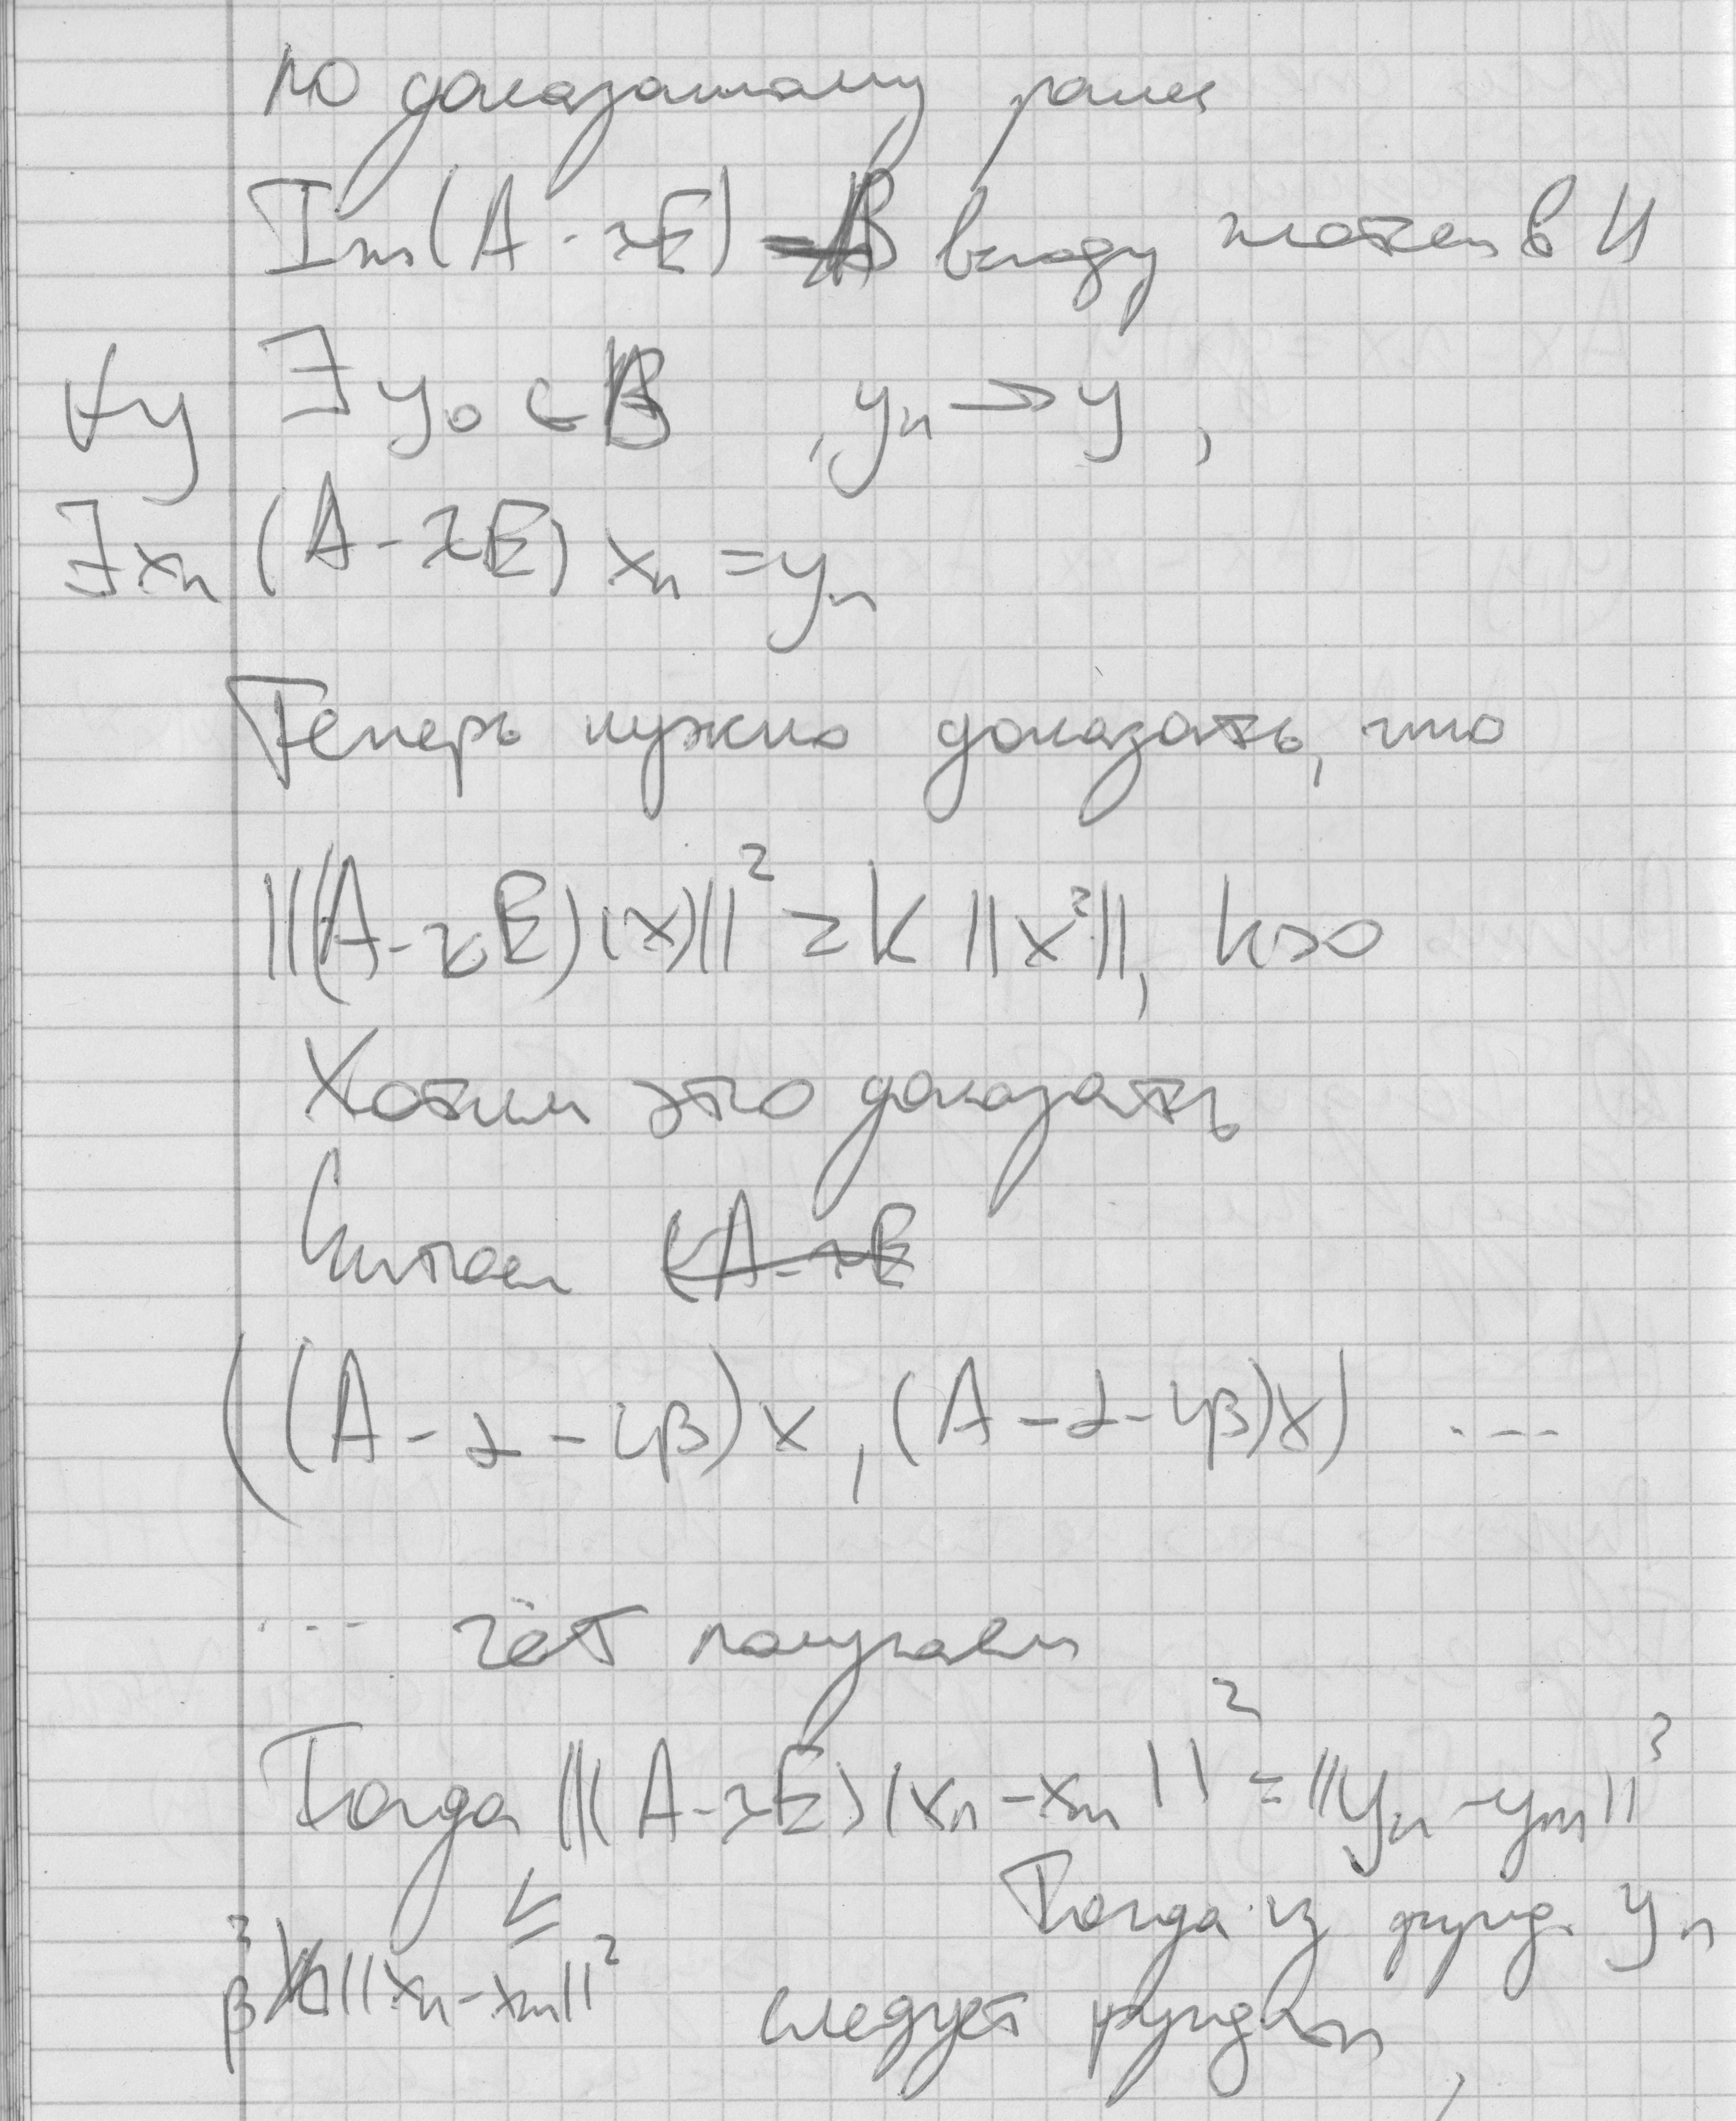 по доказанному ранее
Im(A - λE) = B всюду плотен в H
∀y ∃ y₀ ∈ B , yₙ → y ,
∃xₙ (A - λE) xₙ = yₙ
Теперь нужно доказать, что
||(A - λE)(x)||² ≥ k ||x²||, k>0
Хотим это доказать
Считаем (A - λE
((A - α - iβ)x, (A - α - iβ)x) ...
... чёт получаем
Тогда ||(A - λE)(xₙ - xₘ||² = ||yₙ - yₘ||²
V= Тогда из фунд. yₙ
β² ||xₙ - xₘ||² следует фунд xₙ ,